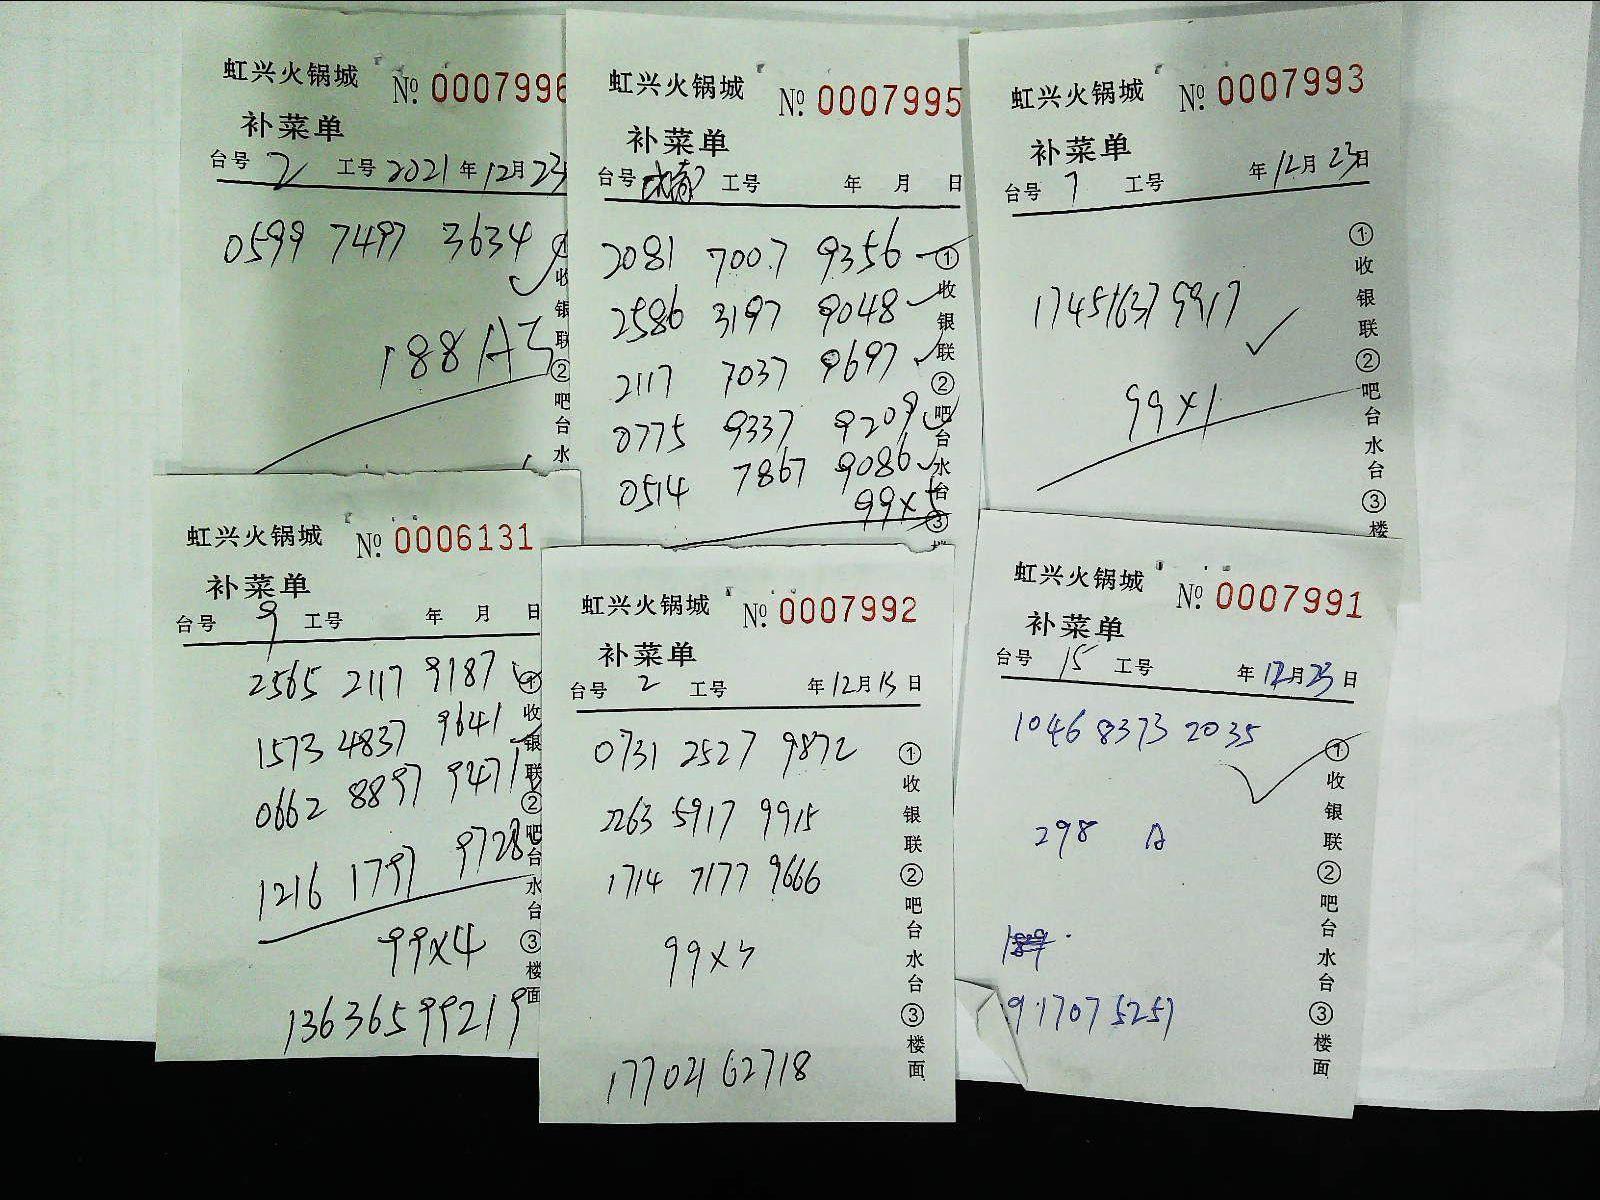 虹兴火锅城 No. 0007996
补菜单
台号 2 工号 2021 年 12月 23
0599 7497 3634
188 A
①收银联②吧台水
虹兴火锅城 No. 0007995
补菜单
台号 工号 年 月 日
2081 7007 9356
2586 3197 9048
2117 7037 9697
0775 9337 9209
0514 7867 9086
99×5
①收银联②吧台水台③楼
虹兴火锅城 No. 0007993
补菜单
台号 7 工号 年 12月 23日
1745 1637 9917
99×1
①收银联②吧台水台③楼
虹兴火锅城 No. 0006131
补菜单
台号 9 工号 年 月 日
2565 2117 9187
1573 4837 9641
0662 8897 9471
1216 1797 9728
99×4
13636599219
①收银联②吧台水台③楼面
虹兴火锅城 No. 0007992
补菜单
台号 2 工号 年 12月 15日
0731 2527 9872
2263 5917 9915
1714 7177 9666
99×3
17702162718
①收银联②吧台水台③楼面
虹兴火锅城 No. 0007991
补菜单
台号 15 工号 年 12月 23日
1046 8373 2035
298 A
①收银联②吧台水台③楼面